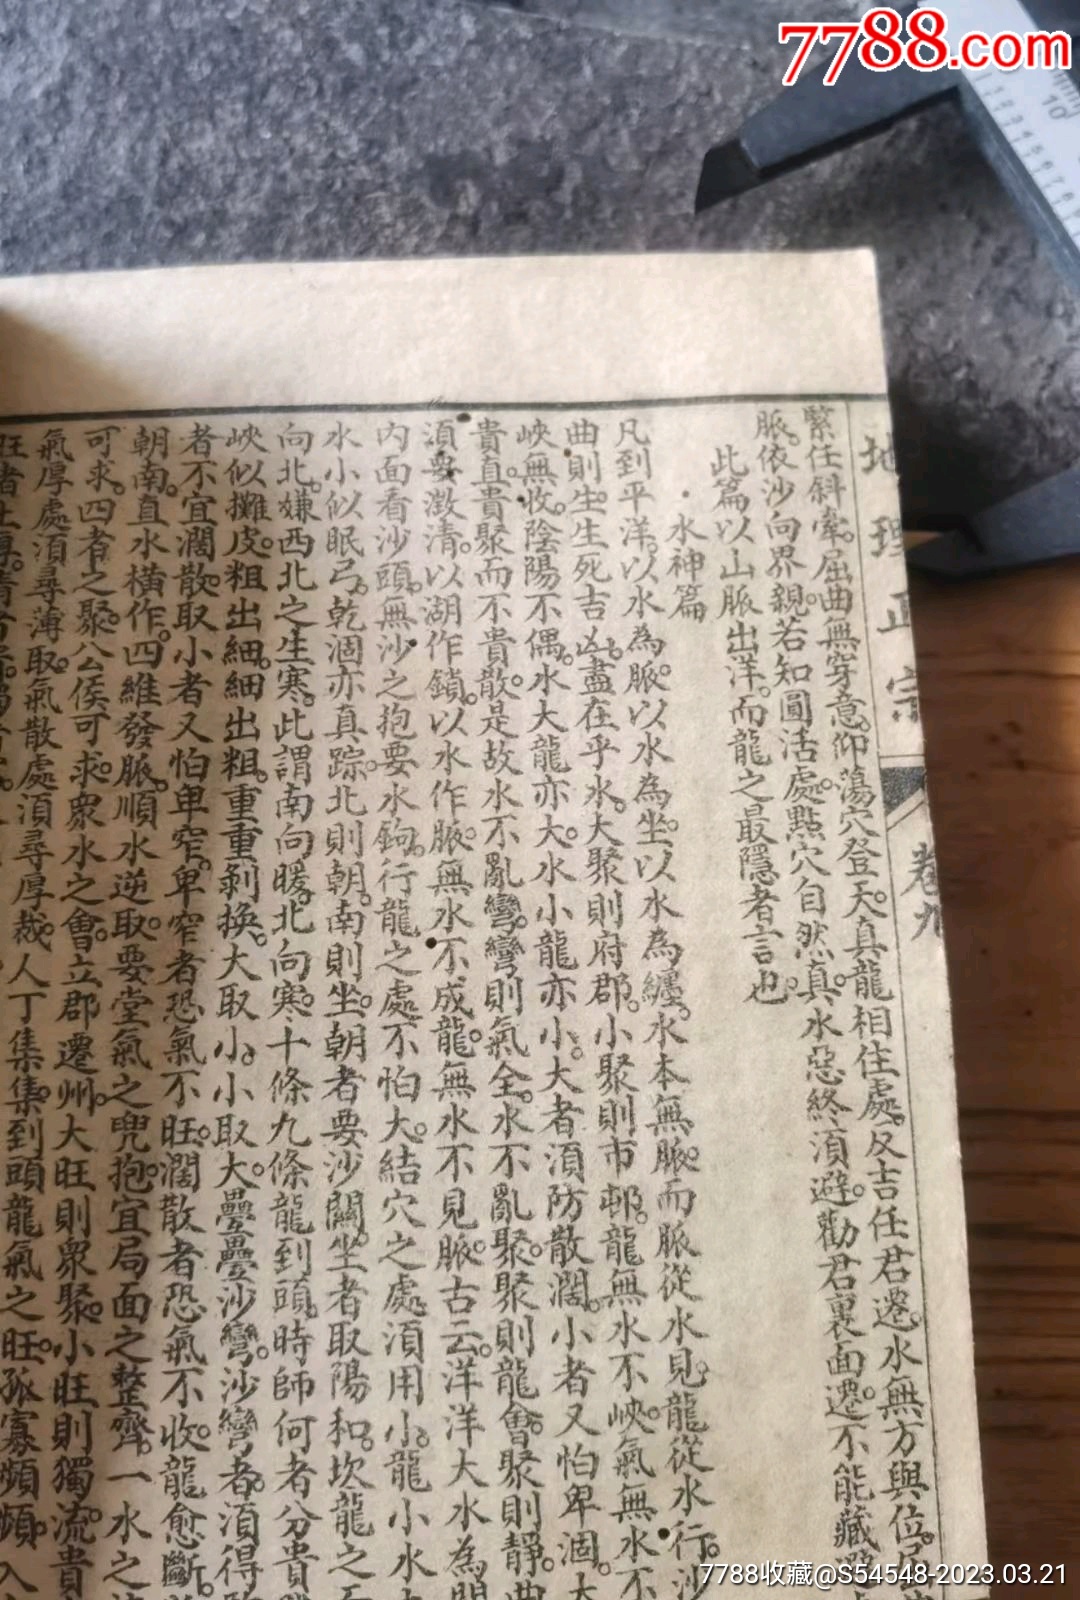 7788.com
地理正宗
卷九
緊任斜牽。屈曲無穿意。仰蕩穴登天。真龍相住處。反吉任君遷。水無方與位。
脈。依沙向界親。若知圓活處。點穴自然真。水惡終須避。勸君裏面遷。不能藏
此篇以山脈出洋。而龍之最隱者言也
水神篇
凡到平洋。以水為脈。以水為坐。以水為纏。水本無脈。而脈從水見。龍從水行。沙
曲則生。生死吉凶。盡在乎水。大聚則府郡。小聚則市邨。龍無水不峽。氣無水不
峽無收。陰陽不偶。水大龍亦大。水小龍亦小。大者須防散濶。小者又怕卑涸。大
貴直。貴聚而不貴散。是故水不亂彎。彎則氣全。水不亂聚。聚則龍會。聚則靜。曲
須要澂清。以湖作鎖。以水作脈。無水不成龍。無水不見脈。古云。洋洋大水為門
內面看沙頭。無沙之抱要水鉤。行龍之處不怕大。結穴之處須用小。龍小水
水小似眠弓。乾涸亦真踪。北則朝。南則坐。朝者要沙關。坐者取陽和。坎龍之
向北。嫌西北之生寒。此謂南向暖。北向寒。十條九條龍到頭。時師何者分貴
峽似攤皮。粗出細。細出粗。重重剝換。大取小。小取大。疊疊沙彎。沙彎者。須得
者不宜濶散。取小者又怕卑窄。卑窄者恐氣不旺。濶散者恐氣不收。龍愈斷
朝南。直水橫作。四維發脈。順水逆取。要堂氣之兜抱。宜局面之整齊。一水之
可求。四者之聚。公侯可求。眾水之會。立郡遷州。大旺則眾聚。小旺則獨流。貴
氣厚處須尋薄取。氣散處須尋厚裁。人丁集集。到頭龍氣之旺。孤寡頻頻。入
7788收藏@S54548-2023.03.21